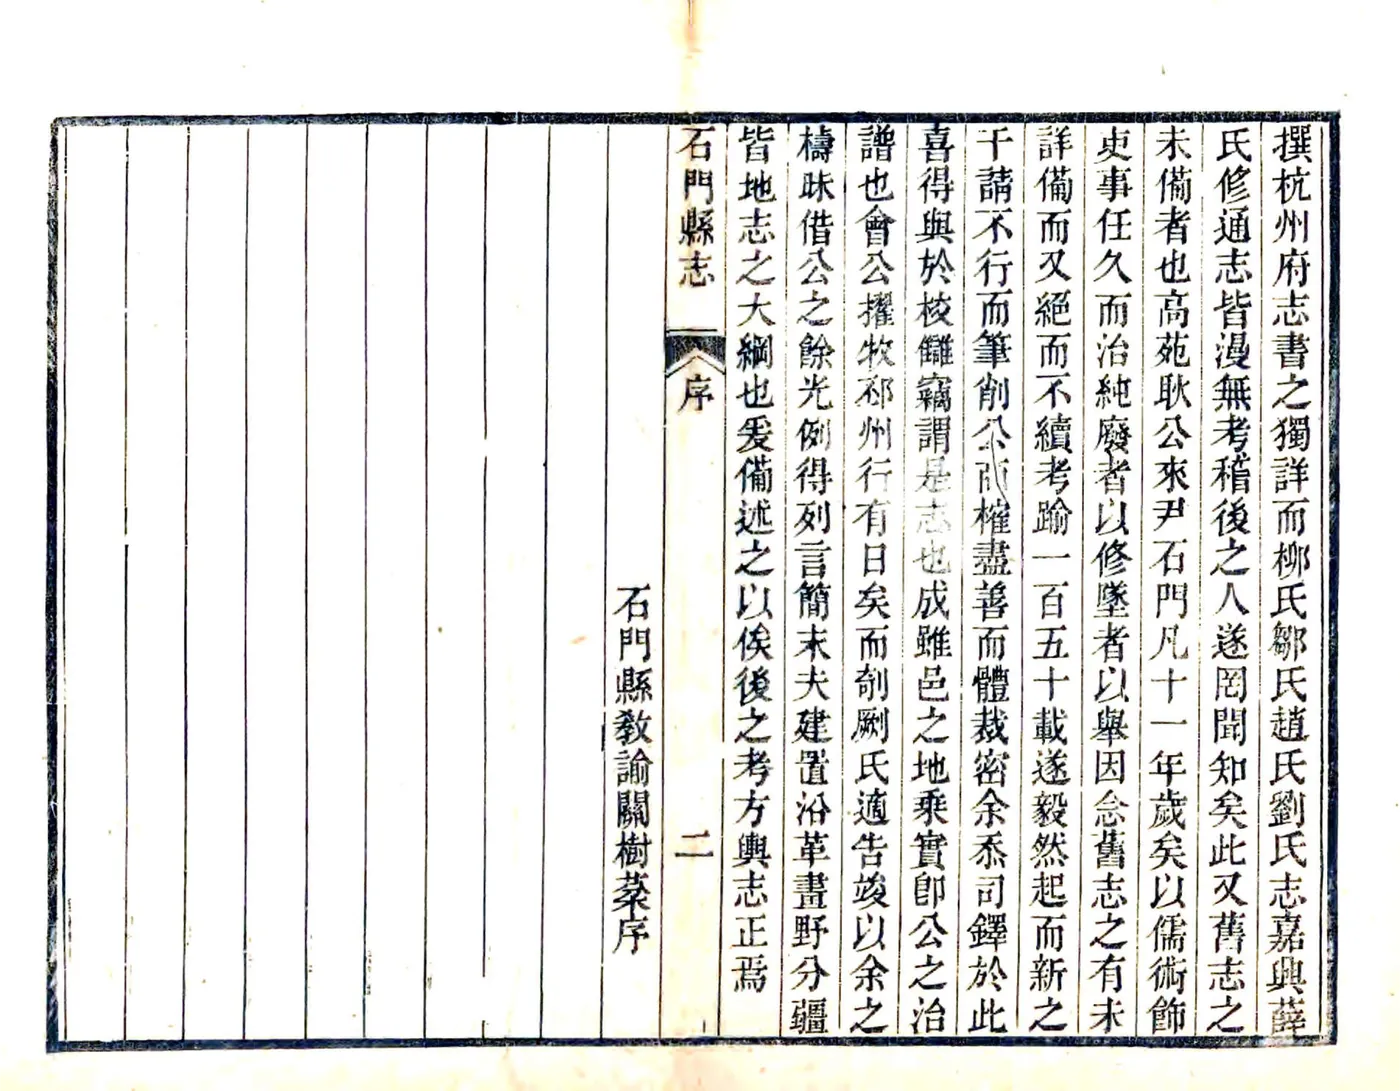 撰杭州府志書之獨詳而柳氏鄒氏趙氏劉氏志嘉興薛
氏修通志皆漫無考稽後之人遂罔聞知矣此又舊志之
未備者也高苑耿公來尹石門凡十一年歲矣以儒術飾
吏事任久而治純廢者以修墜者以舉因念舊志之有未
詳備而又絕而不續考踰一百五十載遂毅然起而新之
干請不行而筆削公而榷盡善而體裁密余忝司鐸於此
喜得與於校讎竊謂是志也成雖邑之地乘實卽公之治
譜也會公擢牧邳州行有日矣而剞劂氏適告竣以余之
檮昧借公之餘光例得列言簡末夫建置沿革畫野分疆
皆地志之大綱也爰備述之以俟後之考方輿志正焉
石門縣教諭關樹棻序
石門縣志
序
二